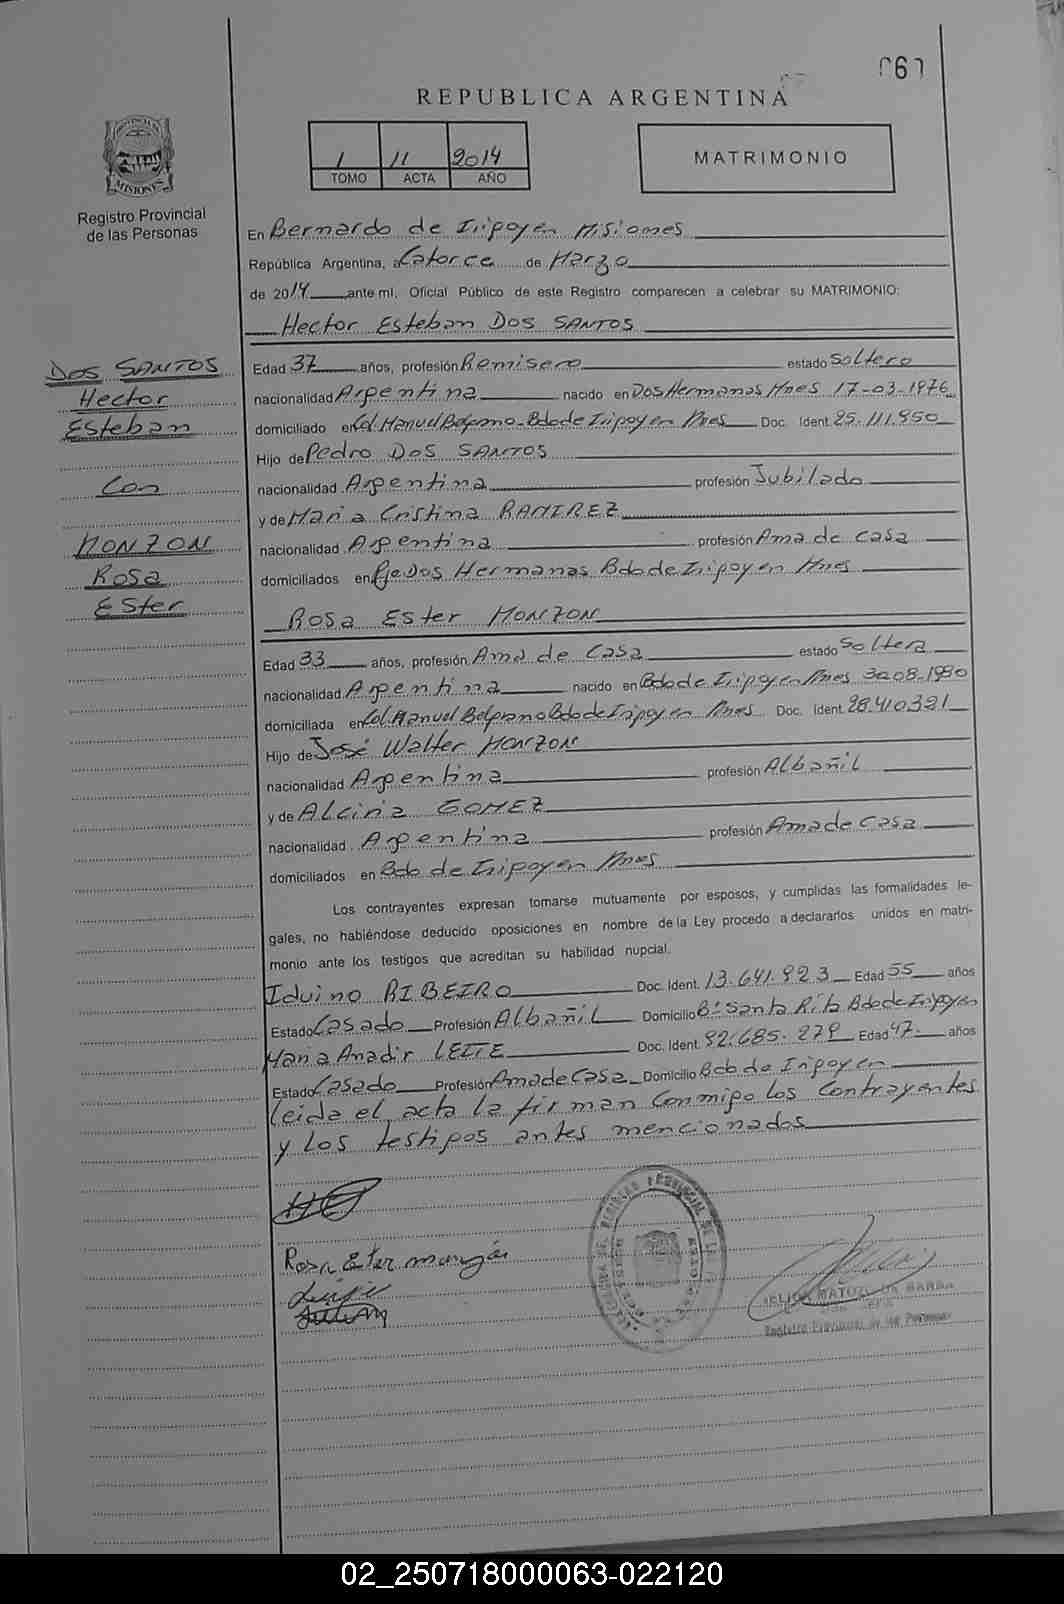 061
REPUBLICA ARGENTINA
1 11 2014
TOMO ACTA AÑO
MATRIMONIO
PROVINCIA DE
MISIONES
Registro Provincial
de las Personas
En Bernardo de Irigoyen Misiones
República Argentina, a Catorce de Marzo
de 2014 ante mí, Oficial Público de este Registro comparecen a celebrar su MATRIMONIO:
Hector Esteban DOS SANTOS
DOS SANTOS
Hector
Esteban
Con
MONZON
Rosa
Ester
Edad 37 años, profesión Remisero estado Soltero
nacionalidad Argentina nacido en Dos Hermanas Mnes 17-03-1976
domiciliado en Col. Manuel Belgrano-Bdo de Irigoyen Mnes Doc. Ident. 25.111.950
Hijo de Pedro DOS SANTOS
nacionalidad Argentina profesión Jubilado
y de Maria Cristina RAMIREZ
nacionalidad Argentina profesión Ama de Casa
domiciliados en Pje Dos Hermanas Bdo de Irigoyen Mnes
Rosa Ester MONZON
Edad 33 años, profesión Ama de Casa estado Soltera
nacionalidad Argentina nacido en Bdo de Irigoyen Mnes 30.08.1980
domiciliada en Col. Manuel Belgrano Bdo de Irigoyen Mnes Doc. Ident. 28.410.321
Hijo de José Walter MONZON
nacionalidad Argentina profesión Albañil
y de Alciria GOMEZ
nacionalidad Argentina profesión Ama de Casa
domiciliados en Bdo de Irigoyen Mnes
Los contrayentes expresan tomarse mutuamente por esposos, y cumplidas las formalidades le-
gales, no habiéndose deducido oposiciones en nombre de la Ley procedo a declararlos unidos en matri-
monio ante los testigos que acreditan su habilidad nupcial.
Iduino RIBEIRO Doc. Ident. 13.641.823 Edad 55 años
Estado Casado Profesión Albañil Domicilio B° Santa Rita Bdo de Irigoyen
Maria Anadir LEITE Doc. Ident. 92.685.279 Edad 47 años
Estado Casado Profesión Ama de Casa Domicilio Bdo de Irigoyen
leida el acta la firman conmigo los contrayentes
y los testigos antes mencionados
Rosa Ester monzón
MATOZO DA BARRA
Registro Provincial de las Personas
02_250718000063-022120